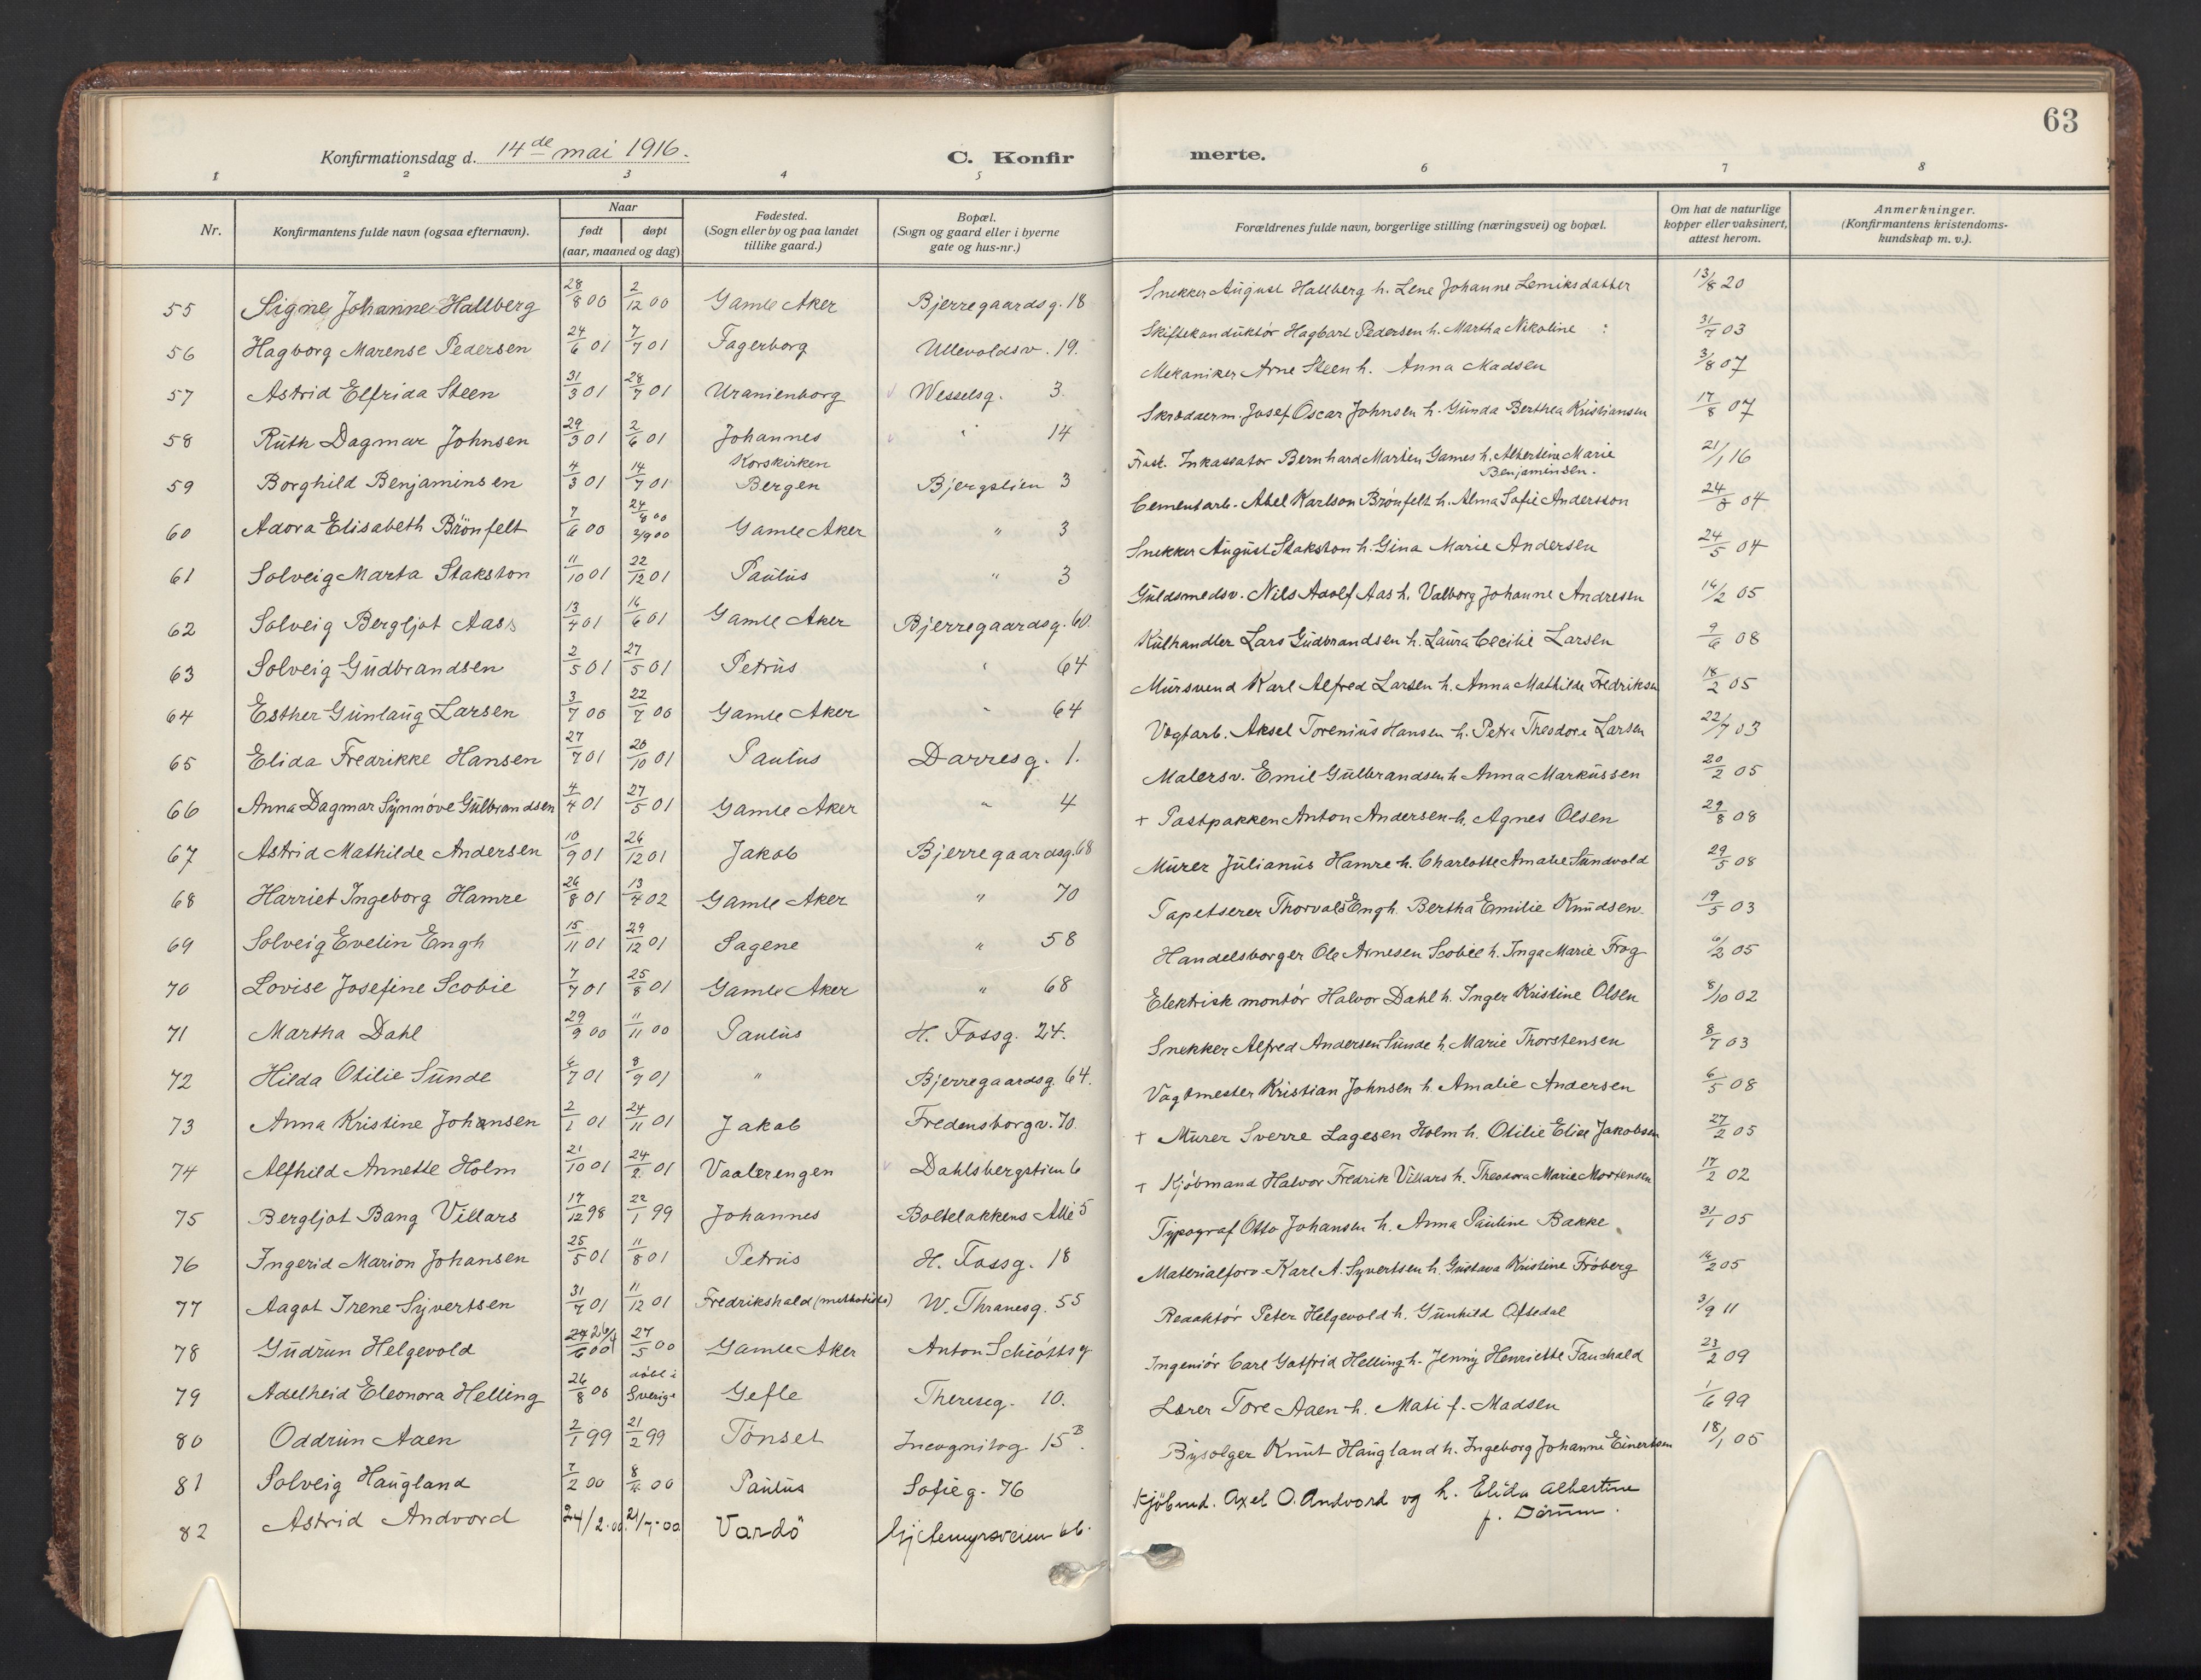 63
Konfirmationsdag d. 14de mai 1916.
C. Konfirmerte.
1 2 3 4 5 6 7 8
Nr.
Konfirmantens fulde navn (ogsaa efternavn).
Naar
født døpt
(aar, maaned og dag)
Fødested.
(Sogn eller by og paa landet
tillike gaard.)
Bopæl.
(Sogn og gaard eller i byerne
gate og hus-nr.)
Forældrenes fulde navn, borgerlige stilling (næringsvei) og bopæl.
Om hat de naturlige
kopper eller vaksinert,
attest herom.
Anmerkninger.
(Konfirmantens kristendoms-
kundskap m. v.).
55 Signe Johanne Hallberg 28/8 00 2/12 00 Gamle Aker Bjerregaardsg. 18 Snekker August Hallberg h. Lene Johanne 13/8 20
56 Hagborg Marense Pedersen 24/6 01 7/7 01 Fagerborg Ullevoldsv. 19. Skiftekonduktór Hagbart Pedersen h. Martha Nikoline 31/7 03
57 Astrid Elfrida Steen 31/3 01 28/7 01 Uranienborg Wesselsg. 3 Mekaniker Arne Steen h. Anna Madsen 3/8 07
58 Ruth Dagmar Johnsen 29/3 01 2/6 01 Johannes " 14 Skrædderm. Josef Oscar Johnsen h. Gunda Berthea Kristiansen 17/8 07
59 Borghild Benjaminsen 4/3 01 14/7 01 Korskirken Bergen Bjergstien 3 Frast. Inkassator Bernhard Martin Games h. Albertine Marie Benjaminsen. 21/1 16
60 Adora Elisabeth Brönfelt 7/6 00 24/8 00 2/9 00 Gamle Aker " 3 Cementarb. Abel Karlson Brónfelt h. Alma Sofie Andersson 24/8 04
61 Solveig Marta Stakston 11/10 01 22/12 01 Paulus " 3 Snekker August Stakston h. Gina Marie Andersen 24/5 04
62 Solveig Bergljot Aass 13/4 01 16/6 01 Gamle Aker Bjerregaardsg. 60. Guldsmedsv. Nils Adolf Aas h. Valborg Johanne Andresen 14/2 05
63 Solveig Gudbrandsen 2/5 01 27/5 01 Petrus " 64 Kulhandler Lars Gudbrandsen h. Laura Cecilie Larsen 9/6 08
64 Esther Gunlaug Larsen 3/7 00 22/7 00 Gamle Aker " 64 Mursvend Karl Alfred Larsen h. Anna Mathilde Fredriksen 18/2 05
65 Elida Fredrikke Hansen 27/7 01 20/10 01 Paulus Darresg. 1. Vogtarb. Aksel Torenius Hansen h. Petra Theodora Larsen 22/7 03
66 Anna Dagmar Synnóve Gulbrandsen 4/4 01 27/5 01 Gamle Aker " 4 Malersv. Emil Gulbrandsen h Anna Markussen 20/2 05
67 Astrid Mathilde Andersen 10/9 01 26/12 01 Jakob Bjerregaardsg. 68 + Postpakken Anton Andersen h. Agnes Olsen 29/8 08
68 Harriet Ingeborg Hamre 26/8 01 13/4 02 Gamle Aker " 70 Murer Julianus Hamre h. Charlotte Amalie Sundvold 29/5 08
69 Solveig Evelin Engh 15/11 01 29/12 01 Sagene " 58 Tapetserer Thorvals Engh. Bertha Emilie Knudsen 19/5 03
70 Lovise Josefine Scobie 7/7 01 25/8 01 Gamle Aker " 68 Handelsborger Ole Arnesen Scobie h. Inga Marie Frog 6/2 05
71 Martha Dahl 29/9 00 11/11 00 Paulus H. Fossg. 24. Elektrisk montór Halvor Dahl h. Inger Kristine Olsen 8/10 02
72 Hilda Otilie Sunde 6/7 01 8/9 01 " Bjerregaardsg. 64. Snekker Alfred Andersen Sunde h. Marie Thorstensen 8/7 03
73 Anna Kristine Johansen 2/1 01 24/11 01 Jakob Fredensborgv. 70. Vagtmester Kristian Johnsen h. Amalie Andersen 6/5 08
74 Alfhild Annette Holm 21/10 01 24/2 01 Vaalerengen Dahlsbergstien 6 + Murer Sverre Lagesen Holm h. Otilie Elise Jakobsen 27/2 05
75 Bergljot Bang Villars 17/12 98 22/1 99 Johannes Boltelokkens Allé 5 + Kjóbmand Halvor Fredrik Villars h. Theodora Marie Mortensen 17/2 02
76 Ingerid Marion Johansen 25/5 01 11/8 01 Petrus H. Fossg. 18 Typograf Otto Johansen h. Anna Pauline Bakke 31/1 05
77 Aagot Irene Syvertsen 31/7 01 11/12 01 Fredrikshald (methodistk) W. Thranesg. 55 Materialforv. Karl A. Syvertsen h. Gustava Kristine Fróberg 14/2 05
78 Gudrun Helgevold 26/4 00 27/5 00 Gamle Aker Anton Schiótts g Redaktór Peter Helgevold h. Gunhild Oftedal 3/9 11
79 Adelheid Eleonora Helling 26/8 00 döbt i Sverige Gefle Thereseg. 10. Ingeniór Carl Gotfrid Helling h. Jenny Henriette Fauchald 23/2 09
80 Oddrun Aaen 2/1 99 21/2 99 Tónset Incognitog 15 B. Lærer Tore Aaen h. Mati f. Madsen 1/6 99
81 Solveig Haugland 7/2 00 8/4 00 Paulus Sofieg. 76 Bysolger Knut Haugland h. Ingeborg Johanne Einertsen 18/1 05
82 Astrid Andvord 24/2.00. 21/7.00 Vardö Gjetemyrsveien 66. Kjöbmd. Axel O. Andvord og h. Elida Albertine f. Dörum.